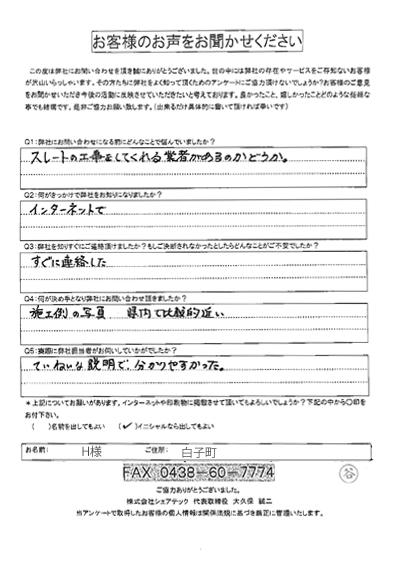 お客様のお声をお聞かせください
この度は弊社にお問い合わせを頂き誠にありがとうございました。世の中には弊社の存在やサービスをご存知ないお客様
が沢山いらっしゃいます。その方たちに弊社をよく知って頂くためのアンケートにご協力頂けないでしょうか？お客様のご意見
をお聞かせいただき今後の活動に反映させていただきたいと考えております。良かったこと、嬉しかったことどのような些細な
事でも結構です。是非ご協力お願い致します。（出来るだけ具体的に書いて頂ければ幸いです）
Q1：弊社にお問い合わせになる前にどんなことで悩んでいましたか？
スレートの工事をしてくれる業者があるのかどうか。
Q2：何がきっかけで弊社をお知りになりましたか？
インターネットで
Q3：弊社を知りすぐにご連絡頂けましたか？もしご決断されなかったとしたらどんなことがご不安でしたか？
すぐに連絡した
Q4：何が決め手となり弊社にお問い合わせ頂きましたか？
施工例の写真　県内で比較的近い
Q5：実際に弊社担当者がお伺いしていかがでしたか？
ていねいな説明で、分かりやすかった。
＊上記についてお願いがあります。インターネットや印刷物に掲載させて頂いてもよろしいでしょうか？下記の中から〇印を
お付下さい。
（　）名前を出してもよい　（✓）イニシャルなら出してもよい
お名前：　H様　ご住所：　白子町
FAX 0438－60－7774
谷
ご協力ありがとうございました。
株式会社シェアテック　代表取締役　大久保　誠二
当アンケートで取得したお客様の個人情報は関係法規に基づき厳正に管理いたします。